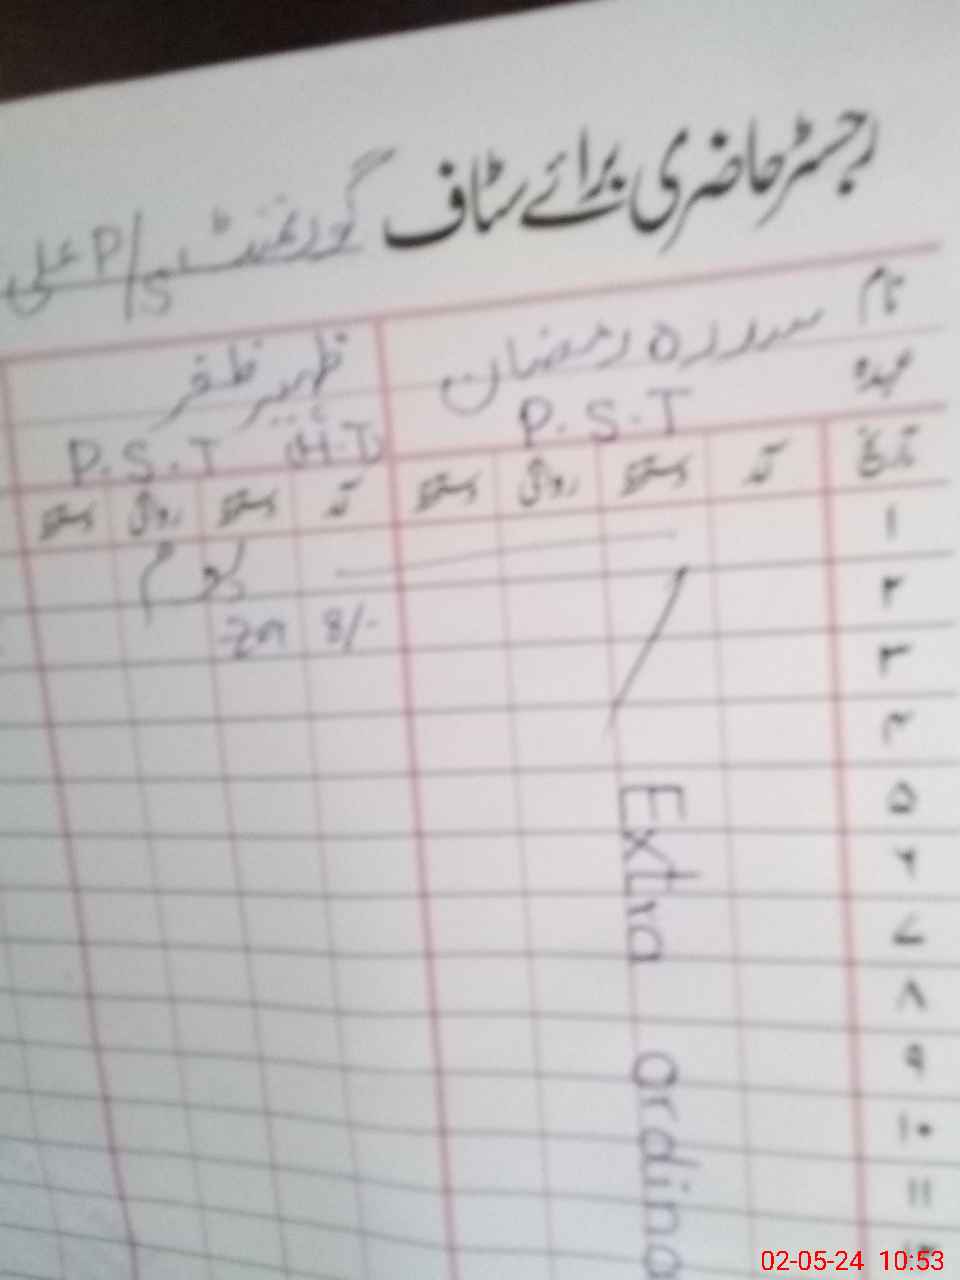 رجسٹر حاضری برائے سٹاف گورنمنٹ P/S علی
نام سدرہ رمضان ظہیر ظفر
عہدہ P.S.T P.S.T (H.T)
تاریخ آمد دستخط روانگی دستخط آمد دستخط روانگی دستخط
۱ یوم م
۲ 8/- Zn
۳
۴
۵
۶
۷
۸
۹
۱۰
۱۱
Extra ordina
02-05-24 10:53